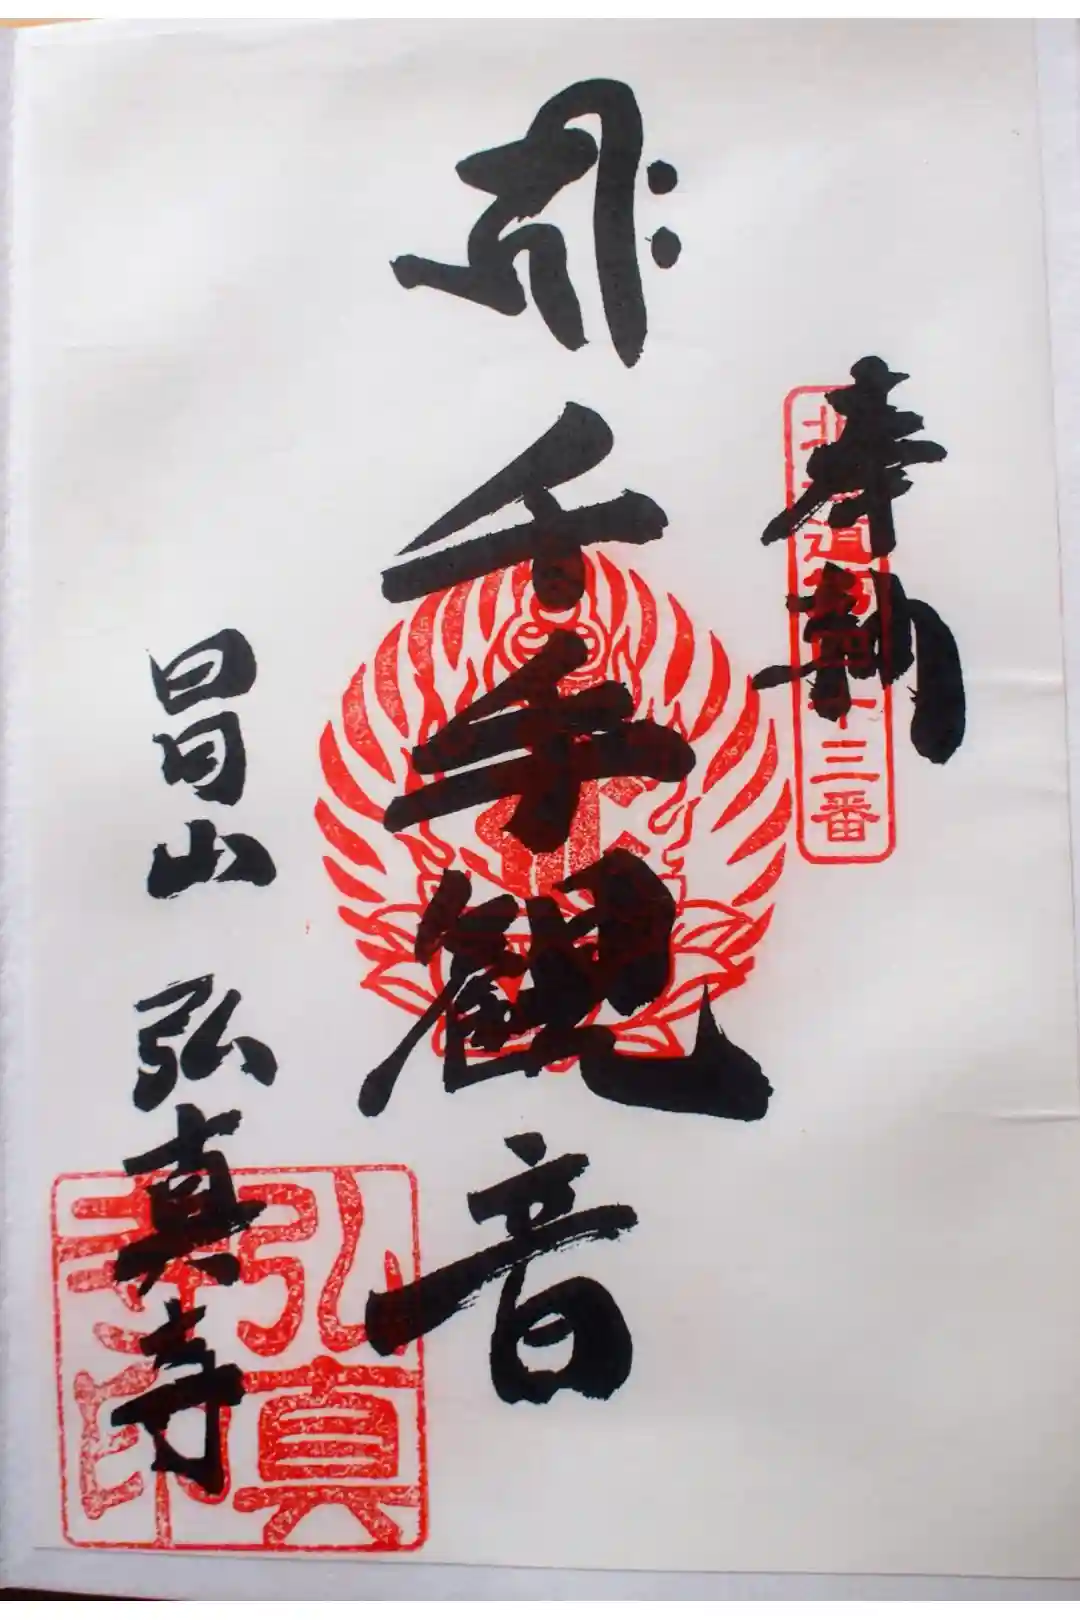 奉納
十三番
千手観音
山 弘真寺
弘真寺印